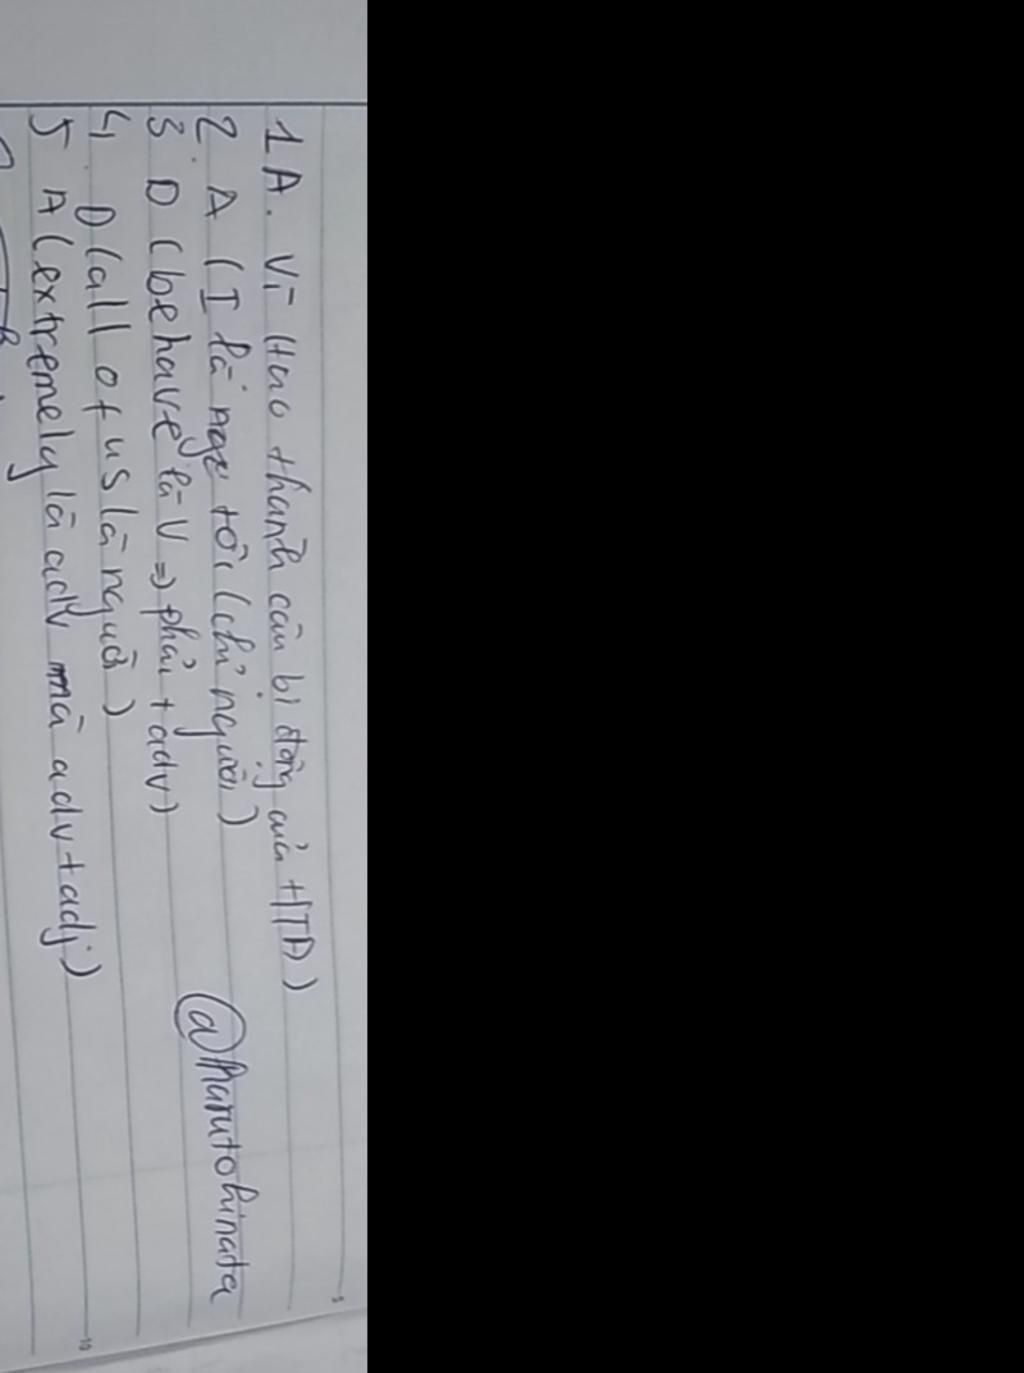 1 A. Vì (tạo thành câu bị động của HTĐ)
2. A (I là ngữ tôi (chỉ người)
@harutohinata
3 D (behave là V => phải + adv)
4. D (all of us là người)
5 A (extremely là adv mà adv + adj)